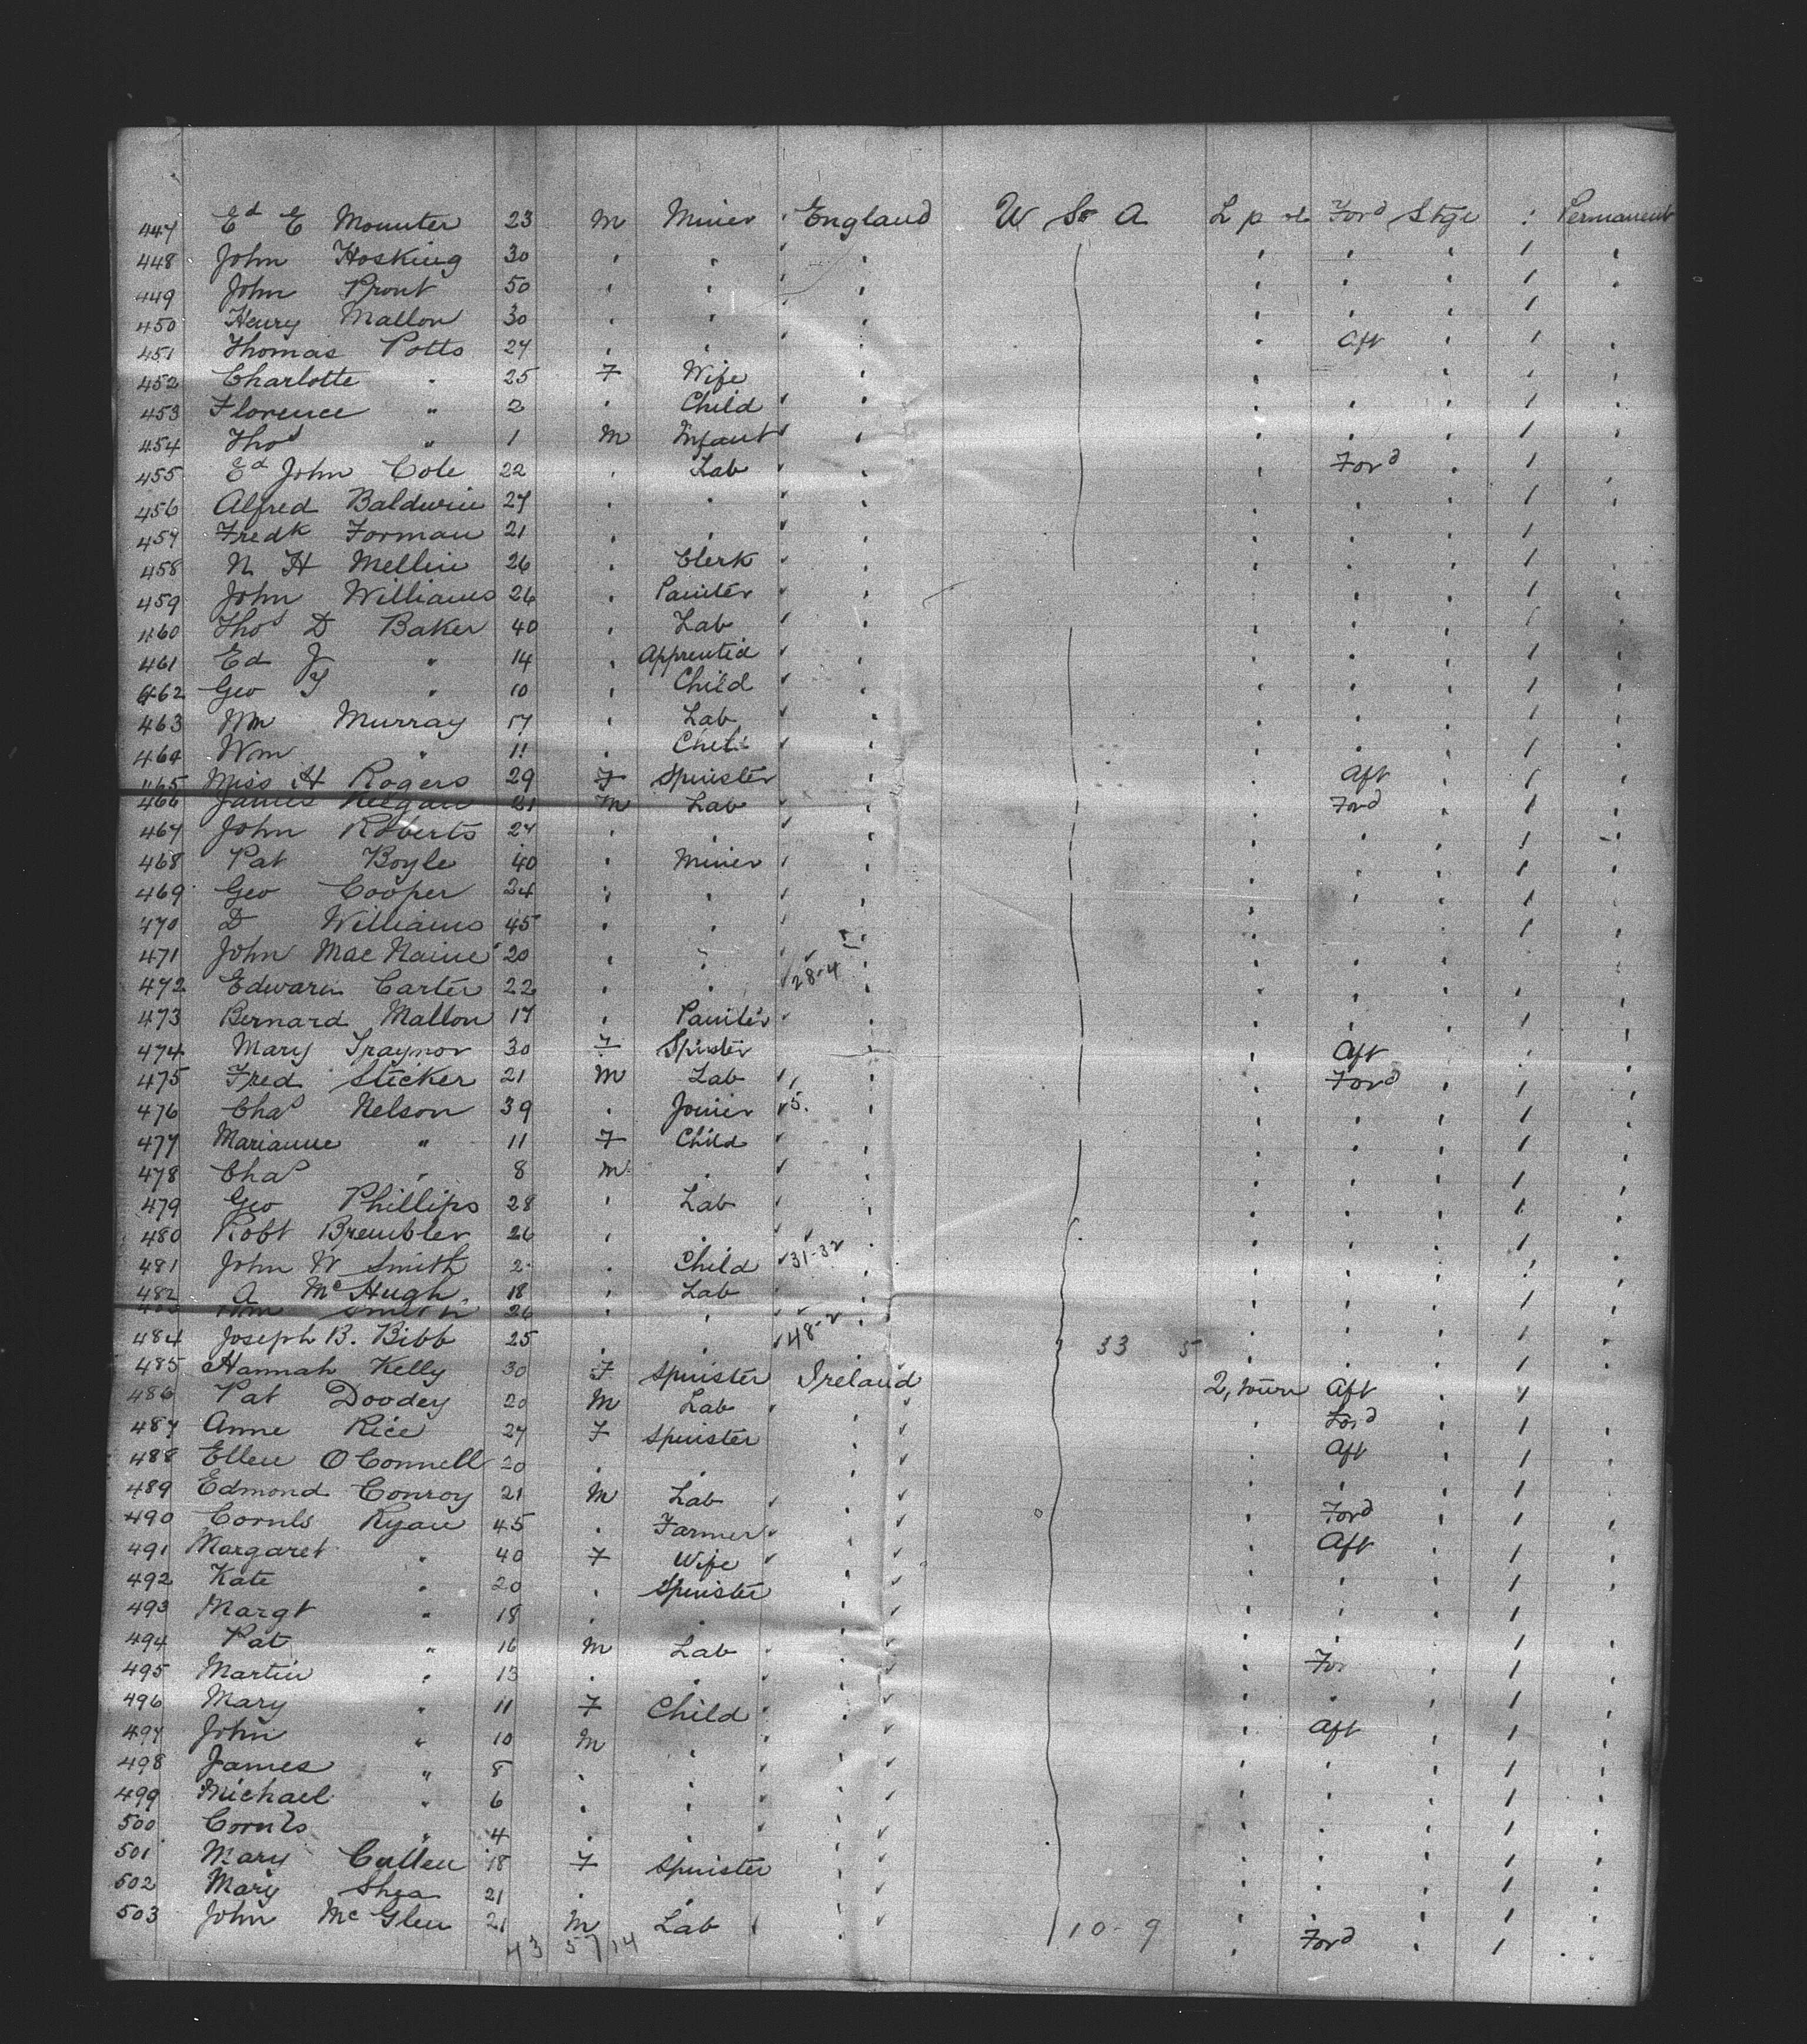 447 Ed E Mounter 23 M Miner England U S A L p ol Ford Stge : Permanent
448 John Hosking 30
449 John Prout 50
450 Henry Mallon 30
451 Thomas Potts 27 Aft
452 Charlotte " 25 F Wife
453 Florence " 2 Child
454 Thos " 1 M Infant
455 Ed John Cole 22 Lab Ford
456 Alfred Baldwin 27
457 Fredk Forman 21
458 N H Mellin 26 Clerk
459 John Williams 26 Painter
460 Thos D Baker 40 Lab
461 Ed J " 14 Apprentice
462 Geo T " 10 Child
463 Wm Murray 17 Lab
464 Wm " 11 Child
465 Miss H Rogers 29 F Spinster Aft
466 James Keegan 21 M Lab Ford
467 John Roberts 27
468 Pat Boyle 40 Miner
469 Geo Cooper 24
470 D Williams 45
471 John Mac Naine 20
472 Edward Carter 22 28-4
473 Bernard Mallon 17 Painter
474 Mary Traynor 30 F Spinster Aft
475 Fred Sticker 21 M Lab Ford
476 Chas Nelson 39 Joiner 5.
477 Marianne " 11 F Child
478 Chas " 8 M
479 Geo Phillips 28 Lab
480 Robt Brembler 26
481 John W Smith 2 Child 31-32
482 A McHugh 18 Lab
483 Wm Smith 26
484 Joseph B. Bibb 25 48-2 33 5
485 Hannah Kelly 30 F Spinster Ireland 2, town Aft
486 Pat Doodey 20 M Lab Ford
487 Anne Rice 27 F Spinster Aft
488 Ellen O Connell 20
489 Edmond Conroy 21 M Lab Ford
490 Cornls Ryan 45 Farmer Aft
491 Margaret " 40 F Wife
492 Kate " 20 Spinster
493 Margt " 18
494 Pat " 16 M Lab For
495 Martin " 13
496 Mary " 11 F Child Aft
497 John " 10 M
498 James " 8
499 Michael " 6
500 Cornls " 4
501 Mary Cullen 18 F Spinster
502 Mary Shea 21
503 John Mc Glen 21 M Lab 10-9 Ford
43 57 14